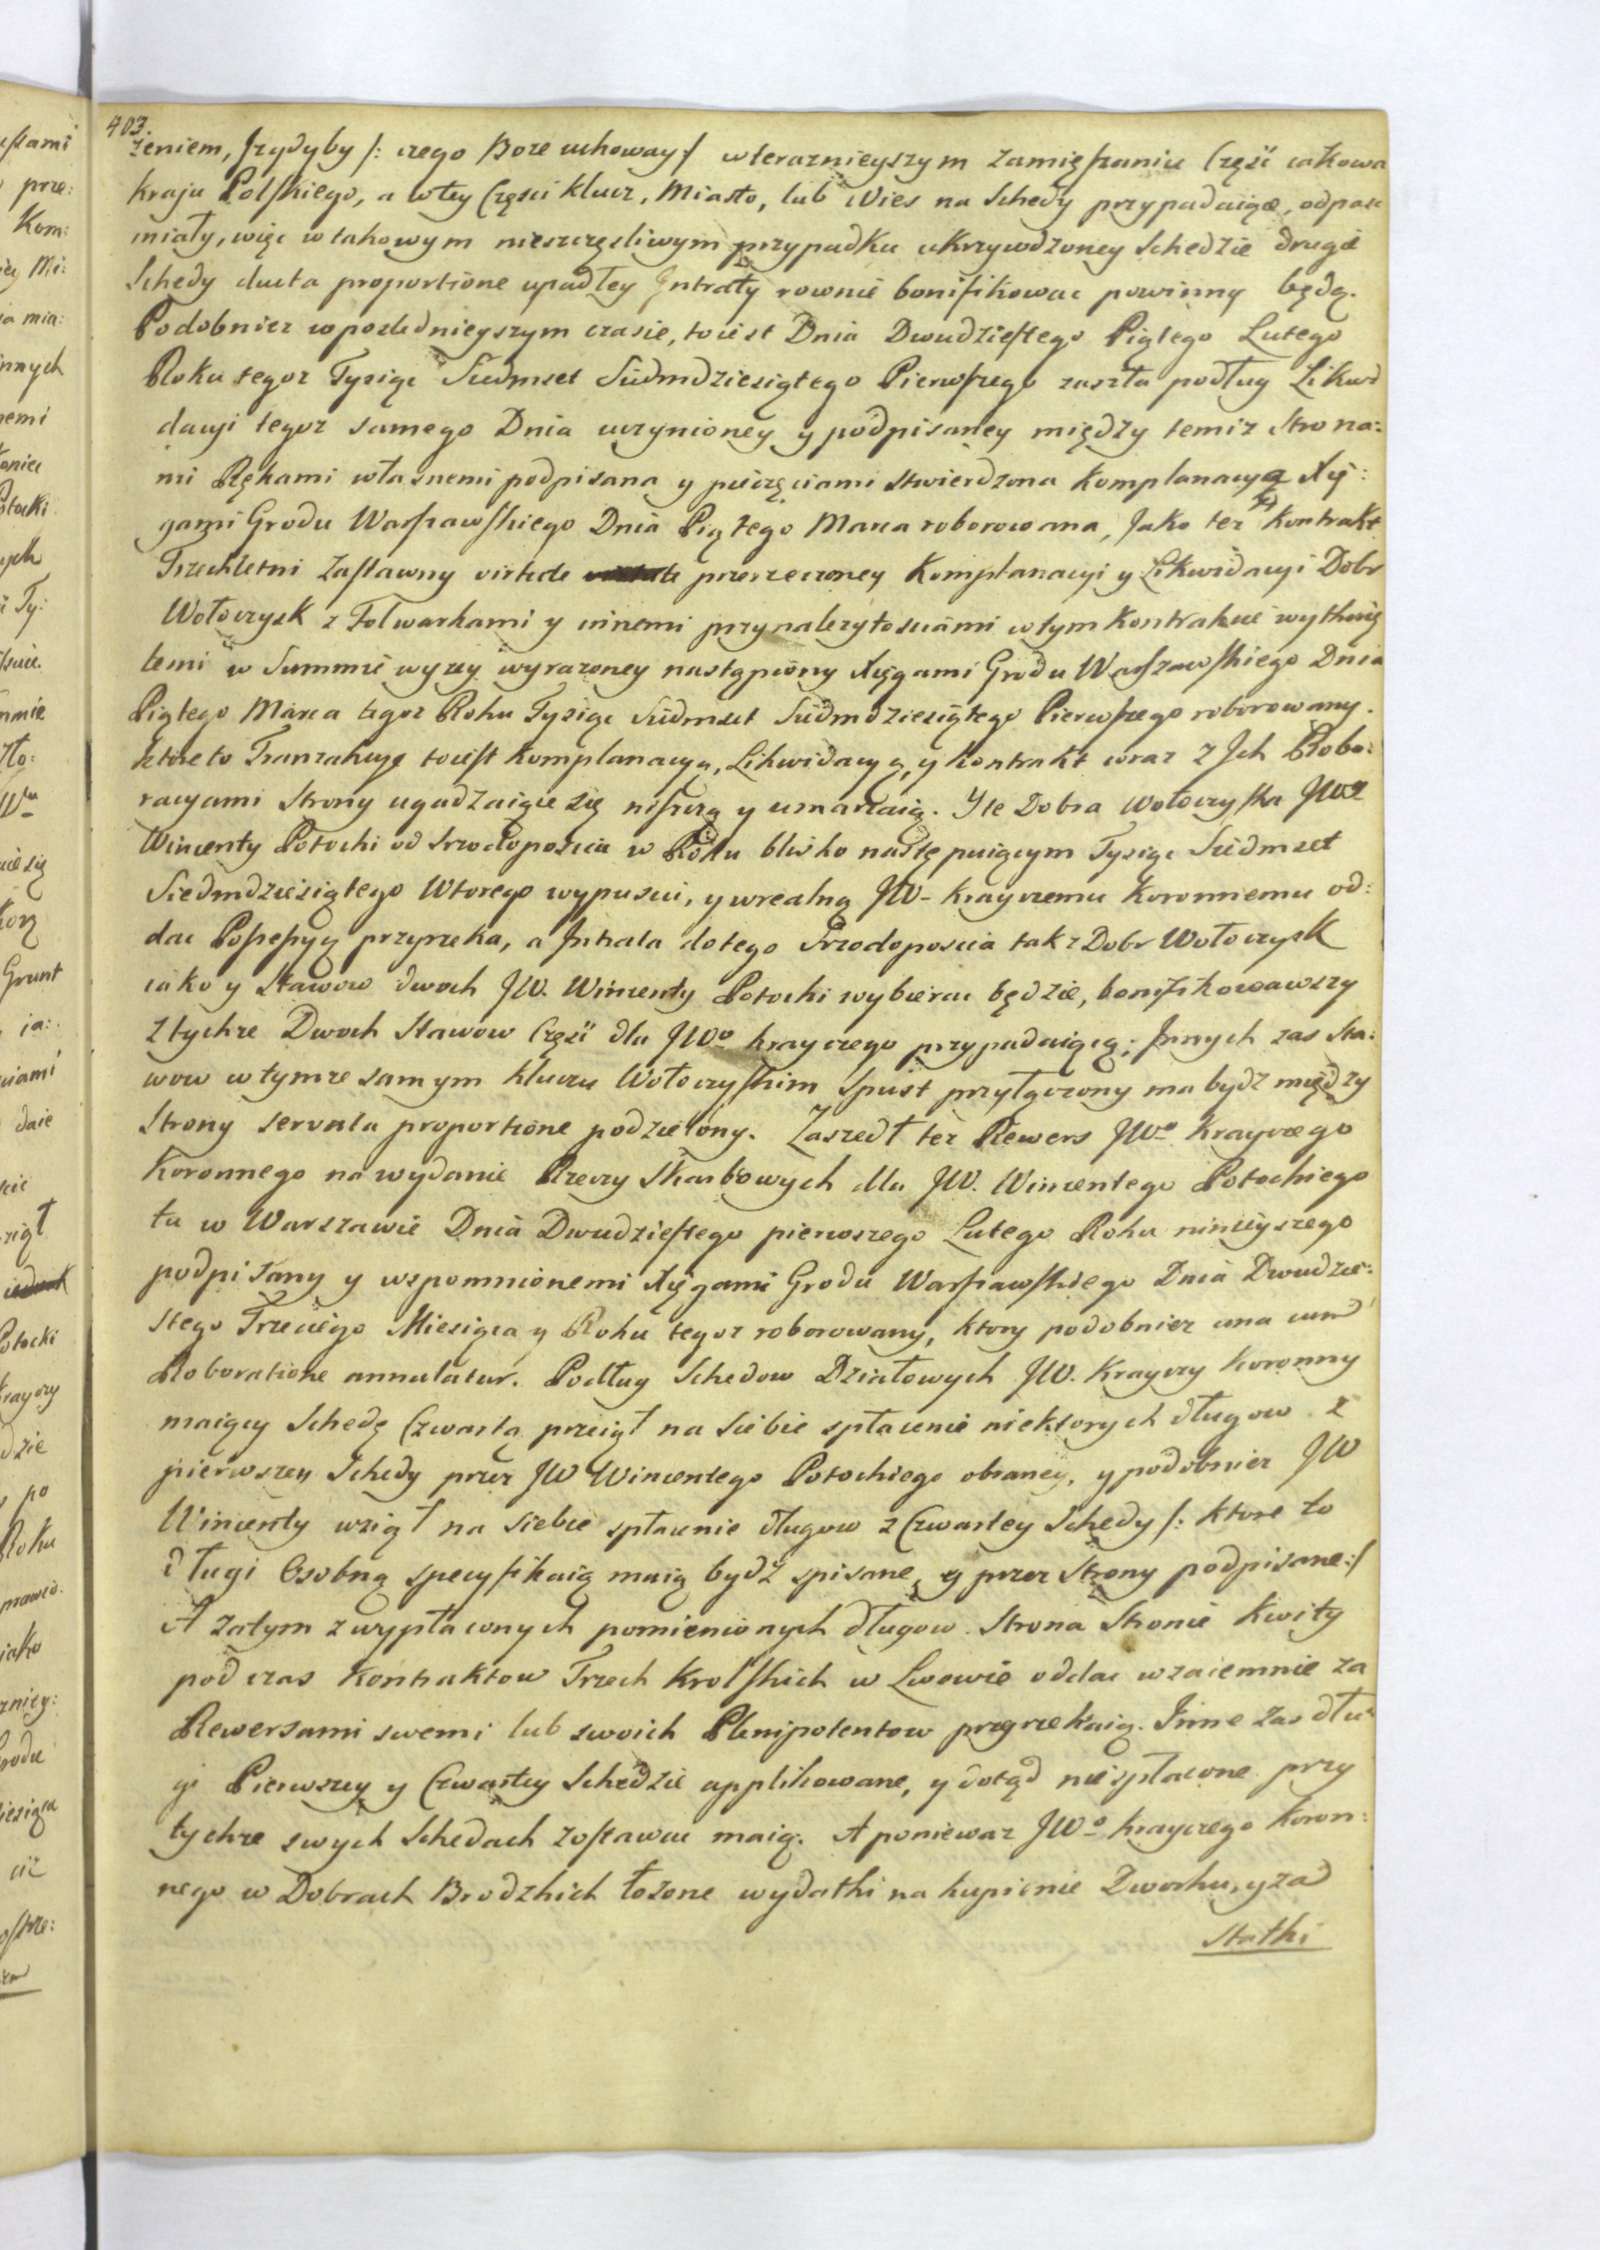 403.
żeniem, Jżydyby /: czego Boże uchoway :/ wteraznieyszym Zamięszaniu Część iakowa
kraju Polskiego, a wtey Części klucz, Miasto, lub Wies na Schedy przypadaiące, odpaść
miały, więc w takowym nieszczęśliwym przypadku ukrzywdzoney Schedzie drugie
Schedy ducta proportione upadłey Intraty rownie bonifikowac powinny będą.
Podobniez w poslednieyszym czasie, to iest Dnia Dwudziestego Piątego Lutego
Roku tegoz Tysiąc Siedmset Siedmdziesiątego Pierwszego zaszła podług Likwi
dacyi tegoz samego Dnia uczynioney y podpisaney między temiz Strona:
mi Rękami własnemi podpisana y pieczęciami stwierdzona Komplanacya Xię:
gami Grodu Warszawskiego Dnia Piątego Marca roborowana, Jako tez Kontrakt
Trzechletni Zastawny virtute przerzeczoney Komplanacyi y Likwidacyi Dobr
Wołoczysk z Folwarkami y innemi przynalezytosciami w tym Kontrakcie wytknię
temi w Summie wyzey wyrazoney nastąpiony Xięgami Grodu Warszawskiego Dnia
Piątego Marca tegoz Roku Tysiąc Siedmset Siedmdziesiątego Pierwszego roborowany.
Ktore to Tranzakcye to iest Komplanacyą, Likwidacyą, y Kontrakt wraz z Jch Robo:
racyami Strony ugadzaiące się niszczą y umarzaią. Y te Dobra Wołoczyska JWny
Wincenty Potocki od Srzodoposcia w Roku blisko następuiącym Tysiąc Siedmset
Siedmdziesiątego Wtorego wypusci, y wrealną JW- Krayczemu Koronnemu od:
dac Possessyą przyrzeka, a Jntrata do tego Srzodoposcia tak z Dobr Wołoczysk
iako y Stawow dwoch JW. Wincenty Potocki wybierac będzie, bonifikowawszy
z tychze Dwoch Stawow Część dla JWo Krayczego przypadaiącą; Jnnych zas Sta:
wow w tymze samym Kluczu Wołoczyskim Spust przyłączony ma bydz między
Strony servata proportione podzielony. Zaszedł tez Rewers JWo Krayczego
Koronnego na wydanie Rzeczy Skarbowych dla JW. Wincentego Potockiego
tu w Warszawie Dnia Dwudziestego pierwszego Lutego Roku ninieyszego
podpisany y wspomnionemi Xięgami Grodu Warszawskiego Dnia Dwudzie:
stego Trzeciego Miesiąca y Roku tegoz roborowany, ktory podobniez una cum
Roboratione annulatur. Podług Schedow Działowych JW. Krayczy Koronny
maiący Schedę Czwartą przeiął na Siebie spłacenie niektorych długow z
pierwszey Schedy przez JW Wincentego Potockiego obraney, y podobniez JW
Wincenty wziął na Siebie spłacenie długow z Czwartey Schedy /: ktore to
długi Osobną specyfikacią maią bydz spisane, y przez Strony podpisane :/
A zatym z wypłaconych pomienionych długow Strona Stronie Kwity
pod czas Kontraktow Trzech Krolskich w Lwowie oddac wzaiemnie za
Rewersami swemi lub swoich Plenipotentow przyrzekaią. Jnne zas dłu
gi Pierwszey y Czwartey Schedzie applikowane, y dotąd niespłacone przy
tychze swych Schedach zostawac maią. A poniewaz JWo Krayczego Koron:
nego w Dobrach Brodzkich łozone wydatki na kupienie Dworku, y zad
Statki